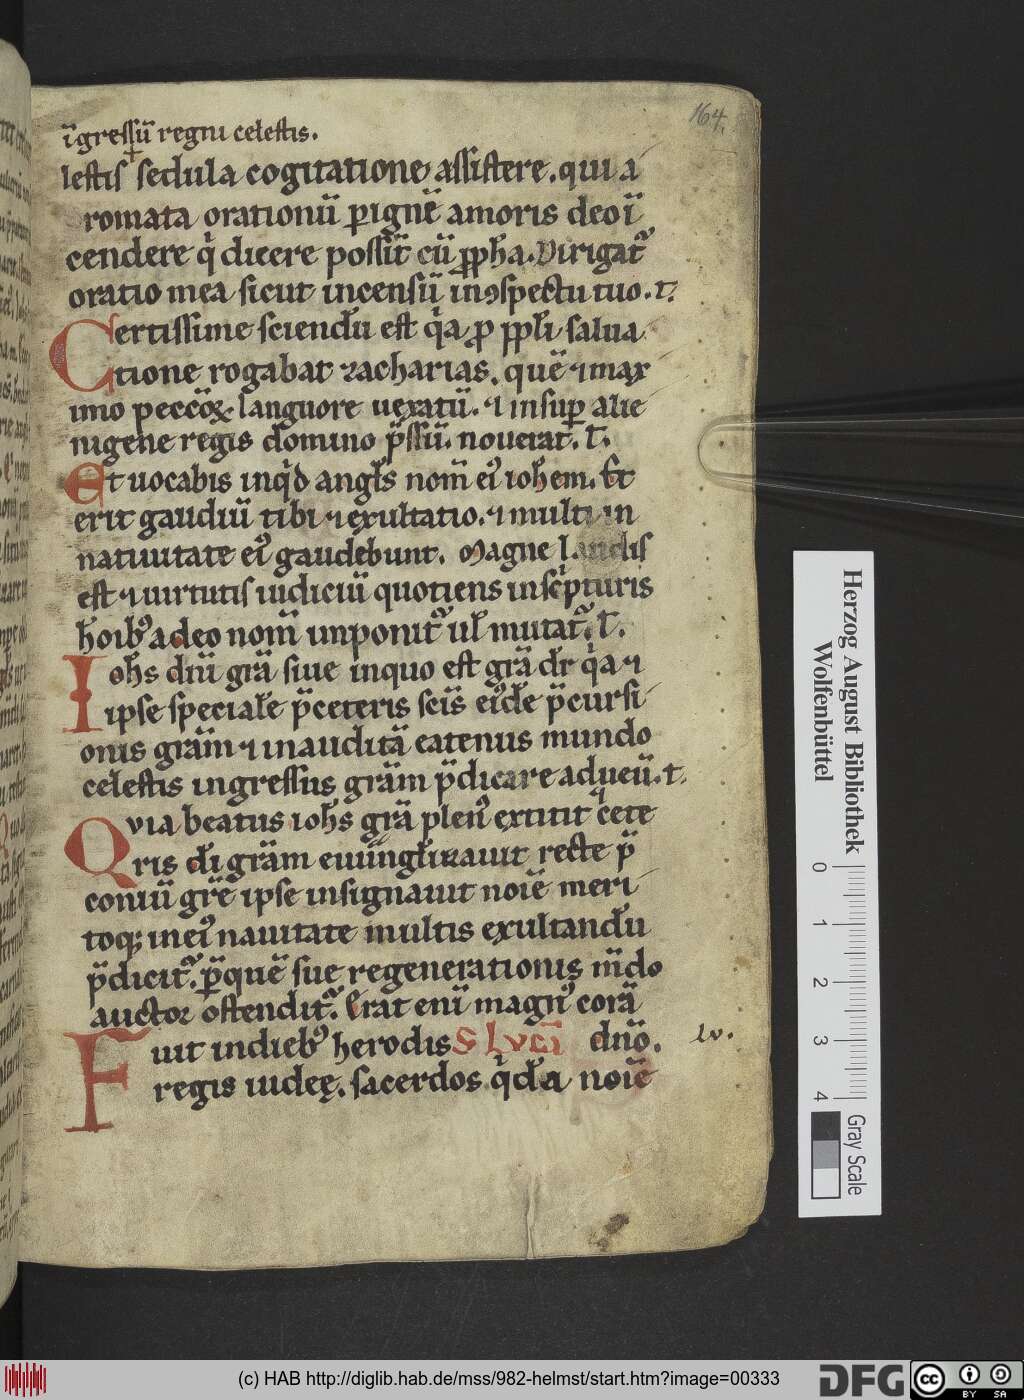 164.
īgressū regni celestis.
lestis sedula cogitatione assistere. qui a
romata orationū p ignē amoris deo ī
cendere q̇ dicere possit cū ꝓpha. Dirigat᷑
oratio mea sicut incensū in ꝯspectu tuo. t.
Certissime sciendū est q̇a ꝓ ppli salua
tione rogabat zacharias. quē ⁊ max
imo peccōꝝ languore uexatū. ⁊ insup alie
nigene regis domino p̄ssū. nouerat. t.
Et uocabis inq̇d angl̄s nom̄ ei᷒ ioh̄em. Et
erit gaudiū tibi ⁊ exultatio. ⁊ multi in
natiuitate ei᷒ gaudebunt. Magne laudis
est ⁊ uirtutis iudiciū quotiens in sċpturis
hoib᷒ a deo nom̄ imponit᷑ ul̄ mutat᷑. t.
Ioh̄s dn̄i grā siue in quo est grā dr̄ q̇a ⁊
ipse speciale p̄ceteris sc̄is ei᷒de p̄cursi
onis grām ⁊ inauditā eatenus mundo
celestis ingressus grām p̄dicare adueū. t.
Quia beatus ioh̄s grā plen᷒ extitit q̇ cete
ris di grām euūngelizauit recte p̄
coniū grē ipse insignauit noīe meri
toq; in ei᷒ nauitate multis exultandū
p̄dicit᷑. p quē sue regenerationis mūdo
auctor ostendit᷑. Erat enī magn᷒ corā
Fuit in dieb᷒ herodis S Lvcā dn̄o. lv.
regis iudeę. sacerdos q̇dā noīe
Herzog August Bibliothek
Wolfenbüttel
0 1 2 3 4
Gray Scale
(c) HAB http://diglib.hab.de/mss/982-helmst/start.htm?image=00333
DFG
cc BY SA